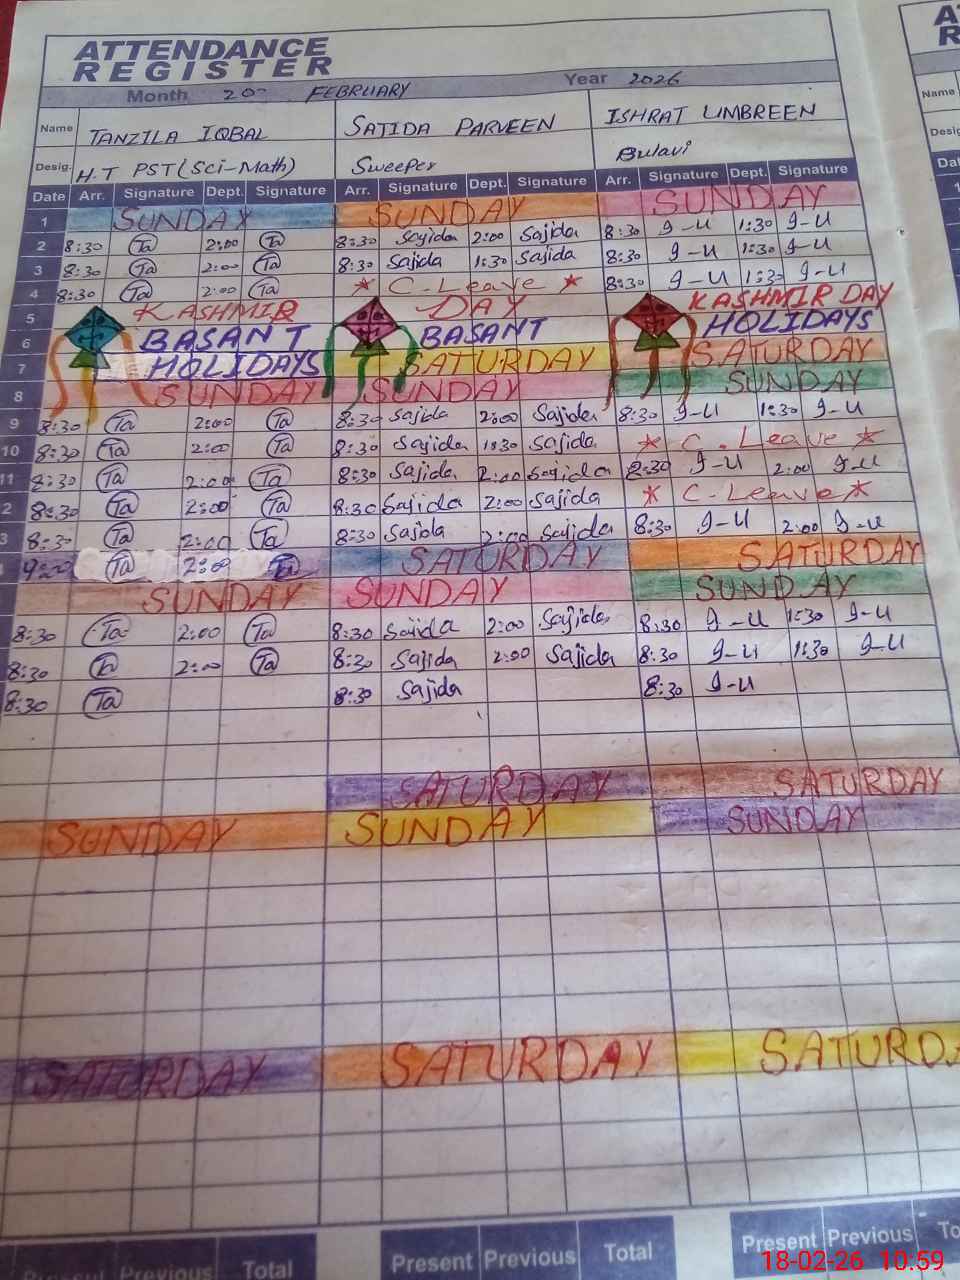 ATTENDANCE
REGISTER
Month FEBRUARY Year 2026
Name TANZILA IQBAL SAJIDA PARVEEN ISHRAT UMBREEN
Desig. H.T PST (Sci-Math) Sweeper Bulavi
Date Arr. Signature Dept. Signature Arr. Signature Dept. Signature Arr. Signature Dept. Signature
1 SUNDAY SUNDAY SUNDAY
2 8:30 Ta 2:00 Ta 8:30 Sajida 2:00 Sajida 8:30 I-U 1:30 I-U
3 8:30 Ta 2:00 Ta 8:30 Sajida 1:30 Sajida 8:30 I-U 1:30 I-U
4 8:30 Ta 2:00 Ta C-Leave 8:30 I-U 1:30 I-U
5 KASHMIR DAY KASHMIR DAY
6 BASANT BASANT HOLIDAYS
7 HOLIDAYS SATURDAY SATURDAY
8 SUNDAY SUNDAY SUNDAY
9 8:30 Ta 2:00 Ta 8:30 Sajida 2:00 Sajida 8:30 I-U 1:30 I-U
10 8:30 Ta 2:00 Ta 8:30 Sajida 1:30 Sajida C.Leave
11 8:30 Ta 2:00 Ta 8:30 Sajida 2:00 Sajida 8:30 I-U 2:00 I-U
2 8:30 Ta 2:00 Ta 8:30 Sajida 2:00 Sajida C-Leave
3 8:30 Ta 2:00 Ta 8:30 Sajida 2:00 Sajida 8:30 I-U 2:00 I-U
Ta 2:00 Ta SATURDAY SATURDAY
SUNDAY SUNDAY SUNDAY
8:30 Ta 2:00 Ta 8:30 Sajida 2:00 Sajida 8:30 I-U 1:30 I-U
8:30 Ta 2:00 Ta 8:30 Sajida 2:00 Sajida 8:30 I-U 1:30 I-U
8:30 Ta 8:30 Sajida 8:30 I-U
SATURDAY SATURDAY
SUNDAY SUNDAY SUNDAY
SATURDAY SATURDAY SATURDA
Present Previous Total Present Previous Total Present Previous
18-02-26 10:59